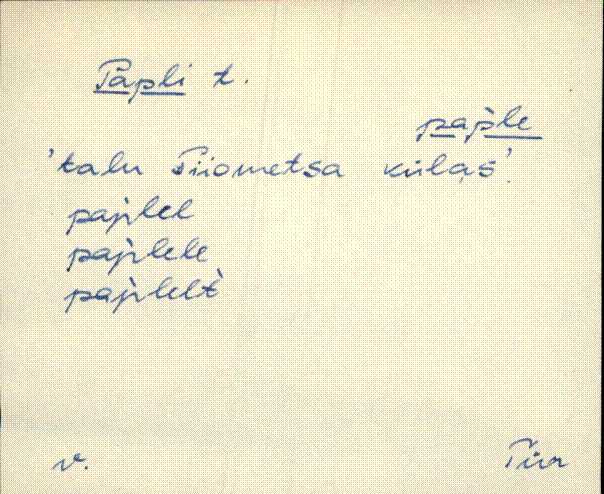 Papli t.
pap̀le
'talu Piiometsa külaś'.
pap̀lel
pap̀lele
pap̀lelt̀
v.
Tür